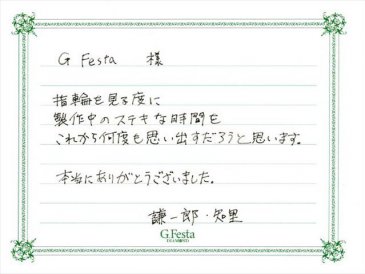 G Festa 様
指輪を見る度に
製作中のステキな時間を
これから何度も思い出すだろうと思います。
本当にありがとうございました。
謙一郎・知里
G.Festa
DIAMOND